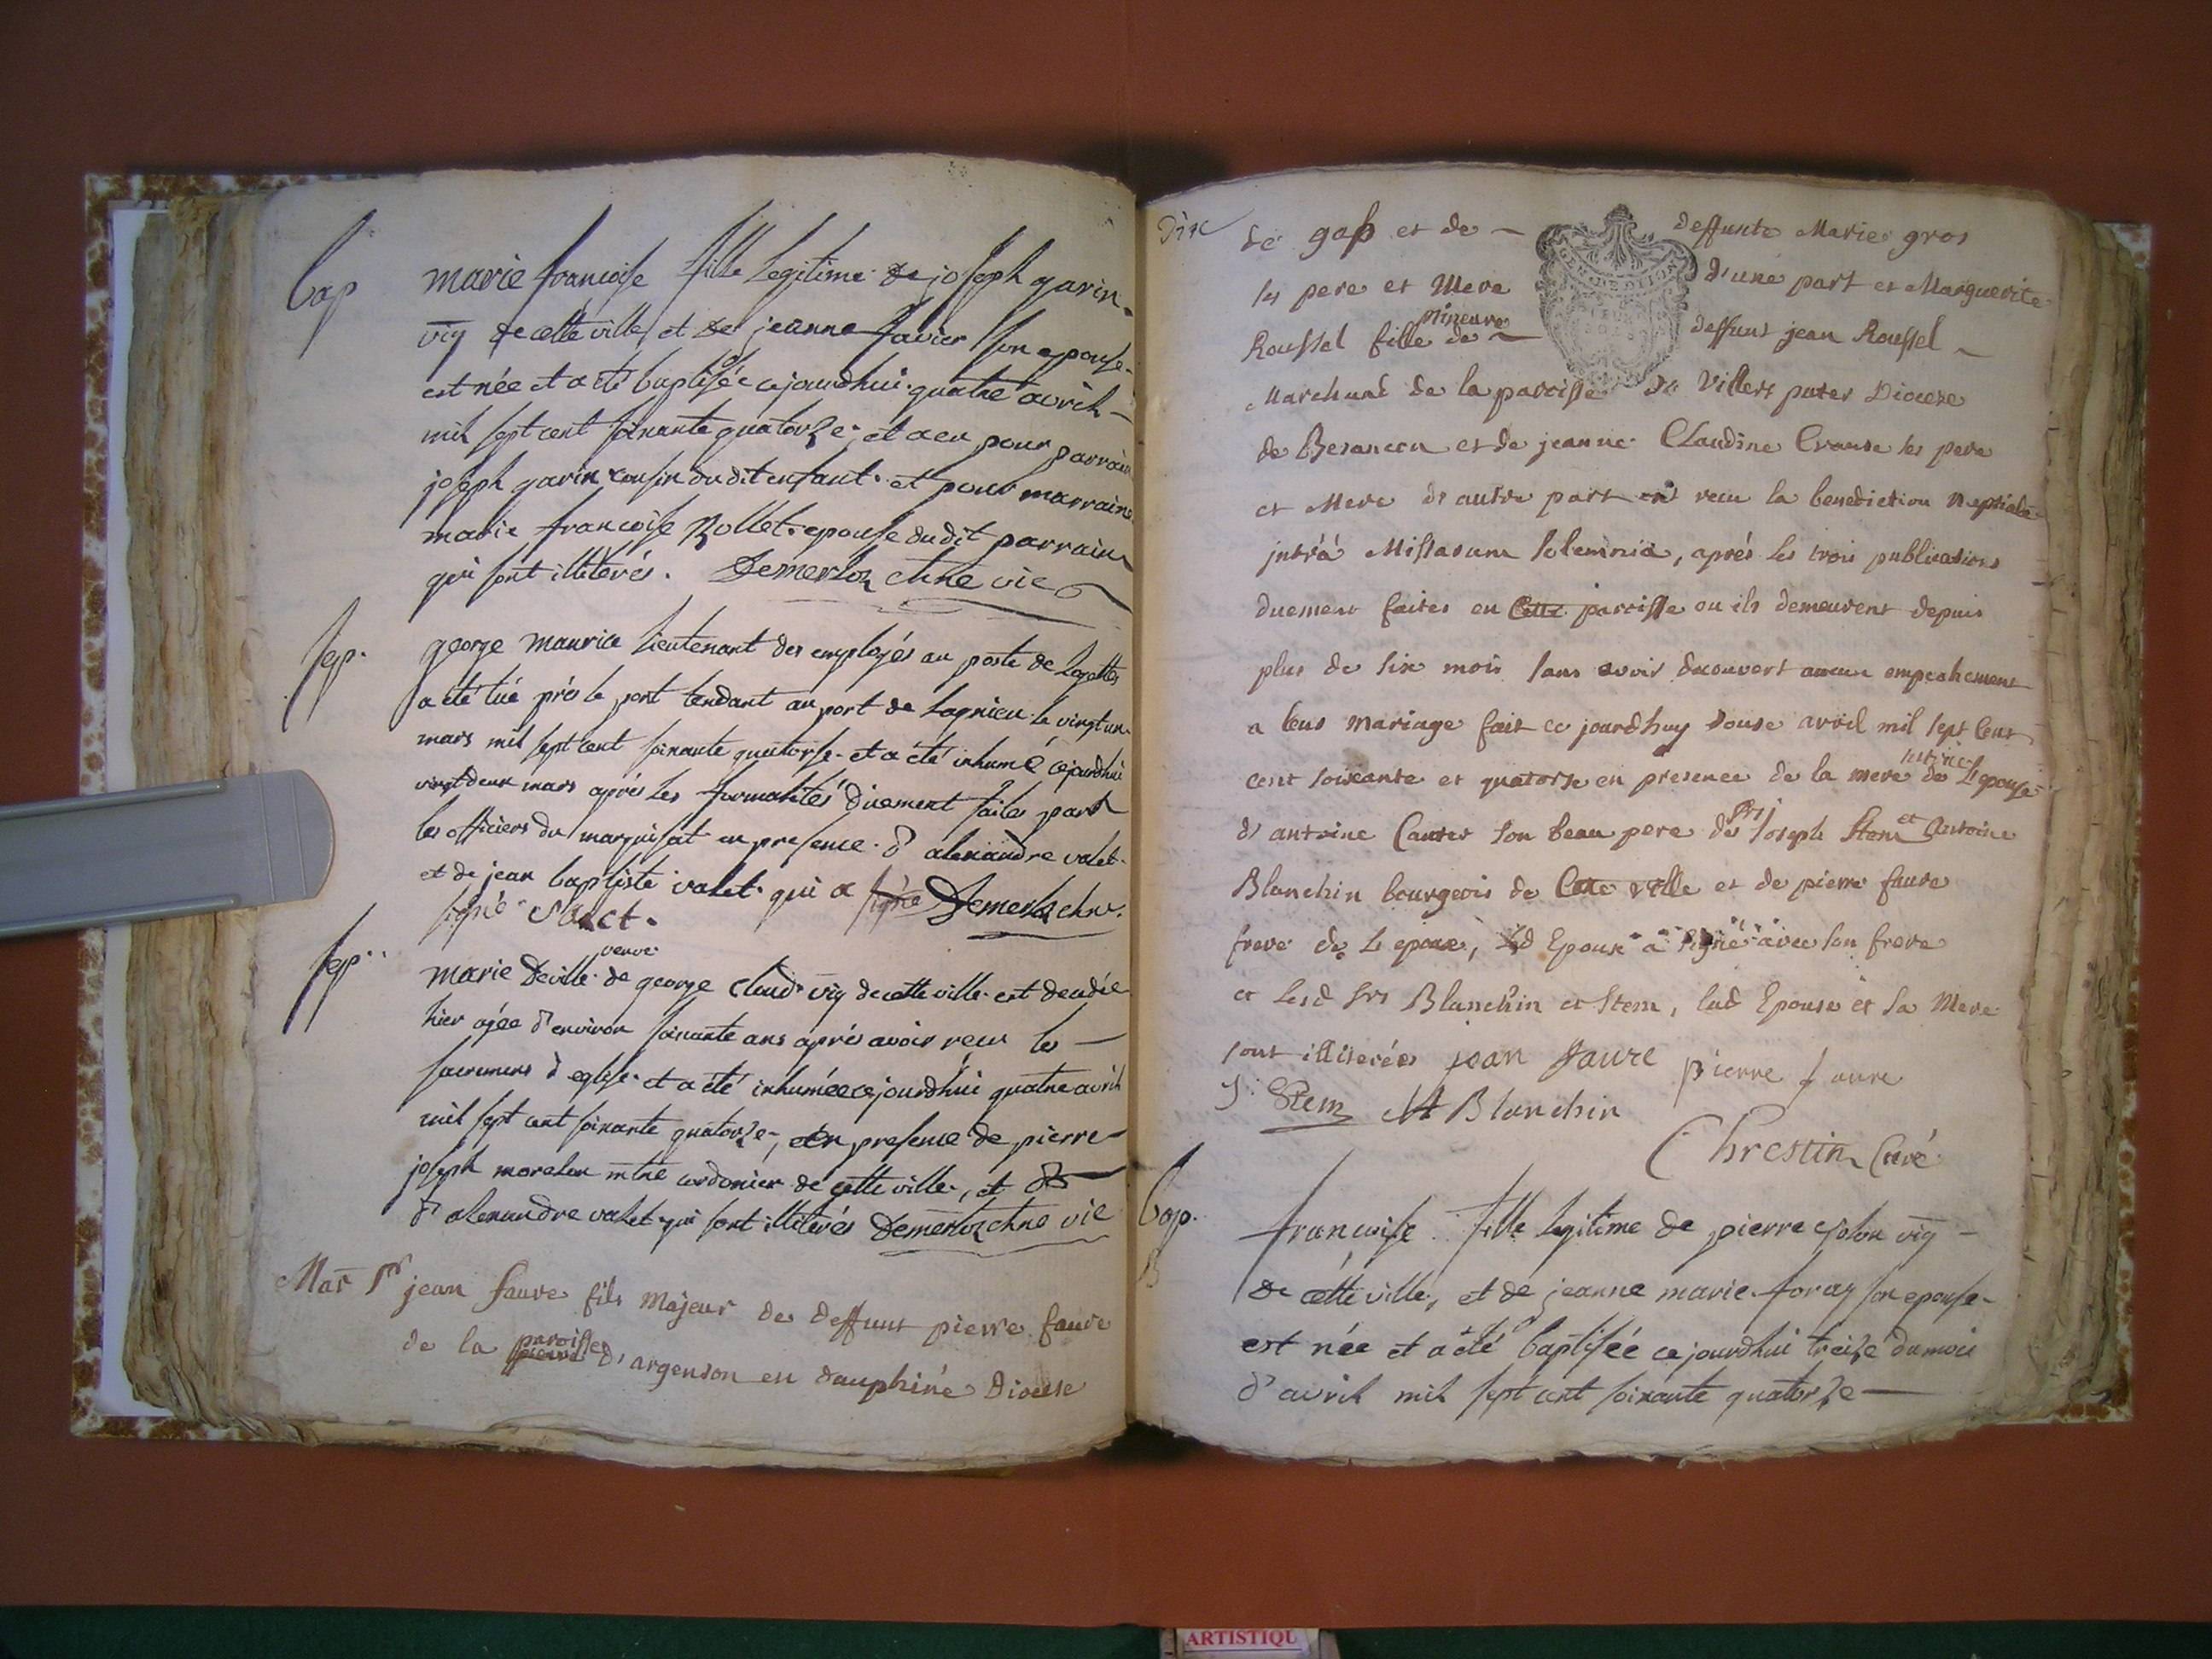 Bap
marie francoise fille legitime de joseph garin
vig de cette ville et de jeanne favier son epouse
est née et a été baptisée cejourdhui quatre avril
mil sept cent soixante quatorze, et a eu pour parrain
joseph garin cousin du dit enfant et pour marraine
marie francoise Rollet epouse du dit parrain
qui sont illiterés. Demerloz chne vic
sep.
george maurice lieutenant des employés au poste de
a été tué prés le port tendant au port de Lagnieu le vingt un
mars mil sept cent soixante quatorse et a été inhumé cejourdhui
vingt deux mars aprés les formalités duement faites par
les officiers du marquisat en presence d'alexandre valet
et de jean baptiste valet qui a signé Demerloz chne.
signé valet.
sep.
veuve
marie Deville de george claud vig de cette ville est decedée
hier agée d'environ soixante ans aprés avoir recu les
sacremens d'eglise et a été inhumée cejourdhui quatre avril
mil sept cent soixante quatorze, en presence de pierre
joseph morelon mtre cordonier de cette ville, et de
d'alexandre valet qui sont illiterés Demerloz chne vic
Mar Sr jean faure fils majeur de deffunt pierre faure
paroisse
de la pierre d'argenson en dauphiné Diocese
Dix
de gap et de deffunte Marie gros
ses pere et Mere d'une part et Marguerite
mineure
Roussel fille de deffunt jean Roussel
Marchand de la paroisse de Villers pater Diocese
de Besancon et de jeanne Claudine Crause ses pere
et Mere d'autre part ont recu la benediction nuptiale
intrà Missarum solemnia, aprés les trois publications
duement faites en Cette paroisse ou ils demeurent depuis
plus de six mois sans avoir decouvert aucun empechement
a leur mariage fait ce jourdhuy douse avril mil sept Cent
cent soixante et quatorse en presence de la mere de Lepouse
d'antoine Cauter son beau pere de Srs joseph Stem et Antoine
Blanchin bourgeois de Cette ville et de pierre faure
frere de Lepoux, led Epoux a signé avec son frere
et lesd Srs Blanchin et Stem, lad Epouse et sa Mere
sont illiterées jean faure pierre faure
J. Stem A Blanchin
Chrestin Curé
Bap.
francoise fille legitime de pierre vig
de cette ville, et de jeanne marie foray son epouse
est née et a été baptisée cejourdhui treize du mois
d'avril mil sept cent soixante quatorze
GEN DE DIJON
ARTISTIQU